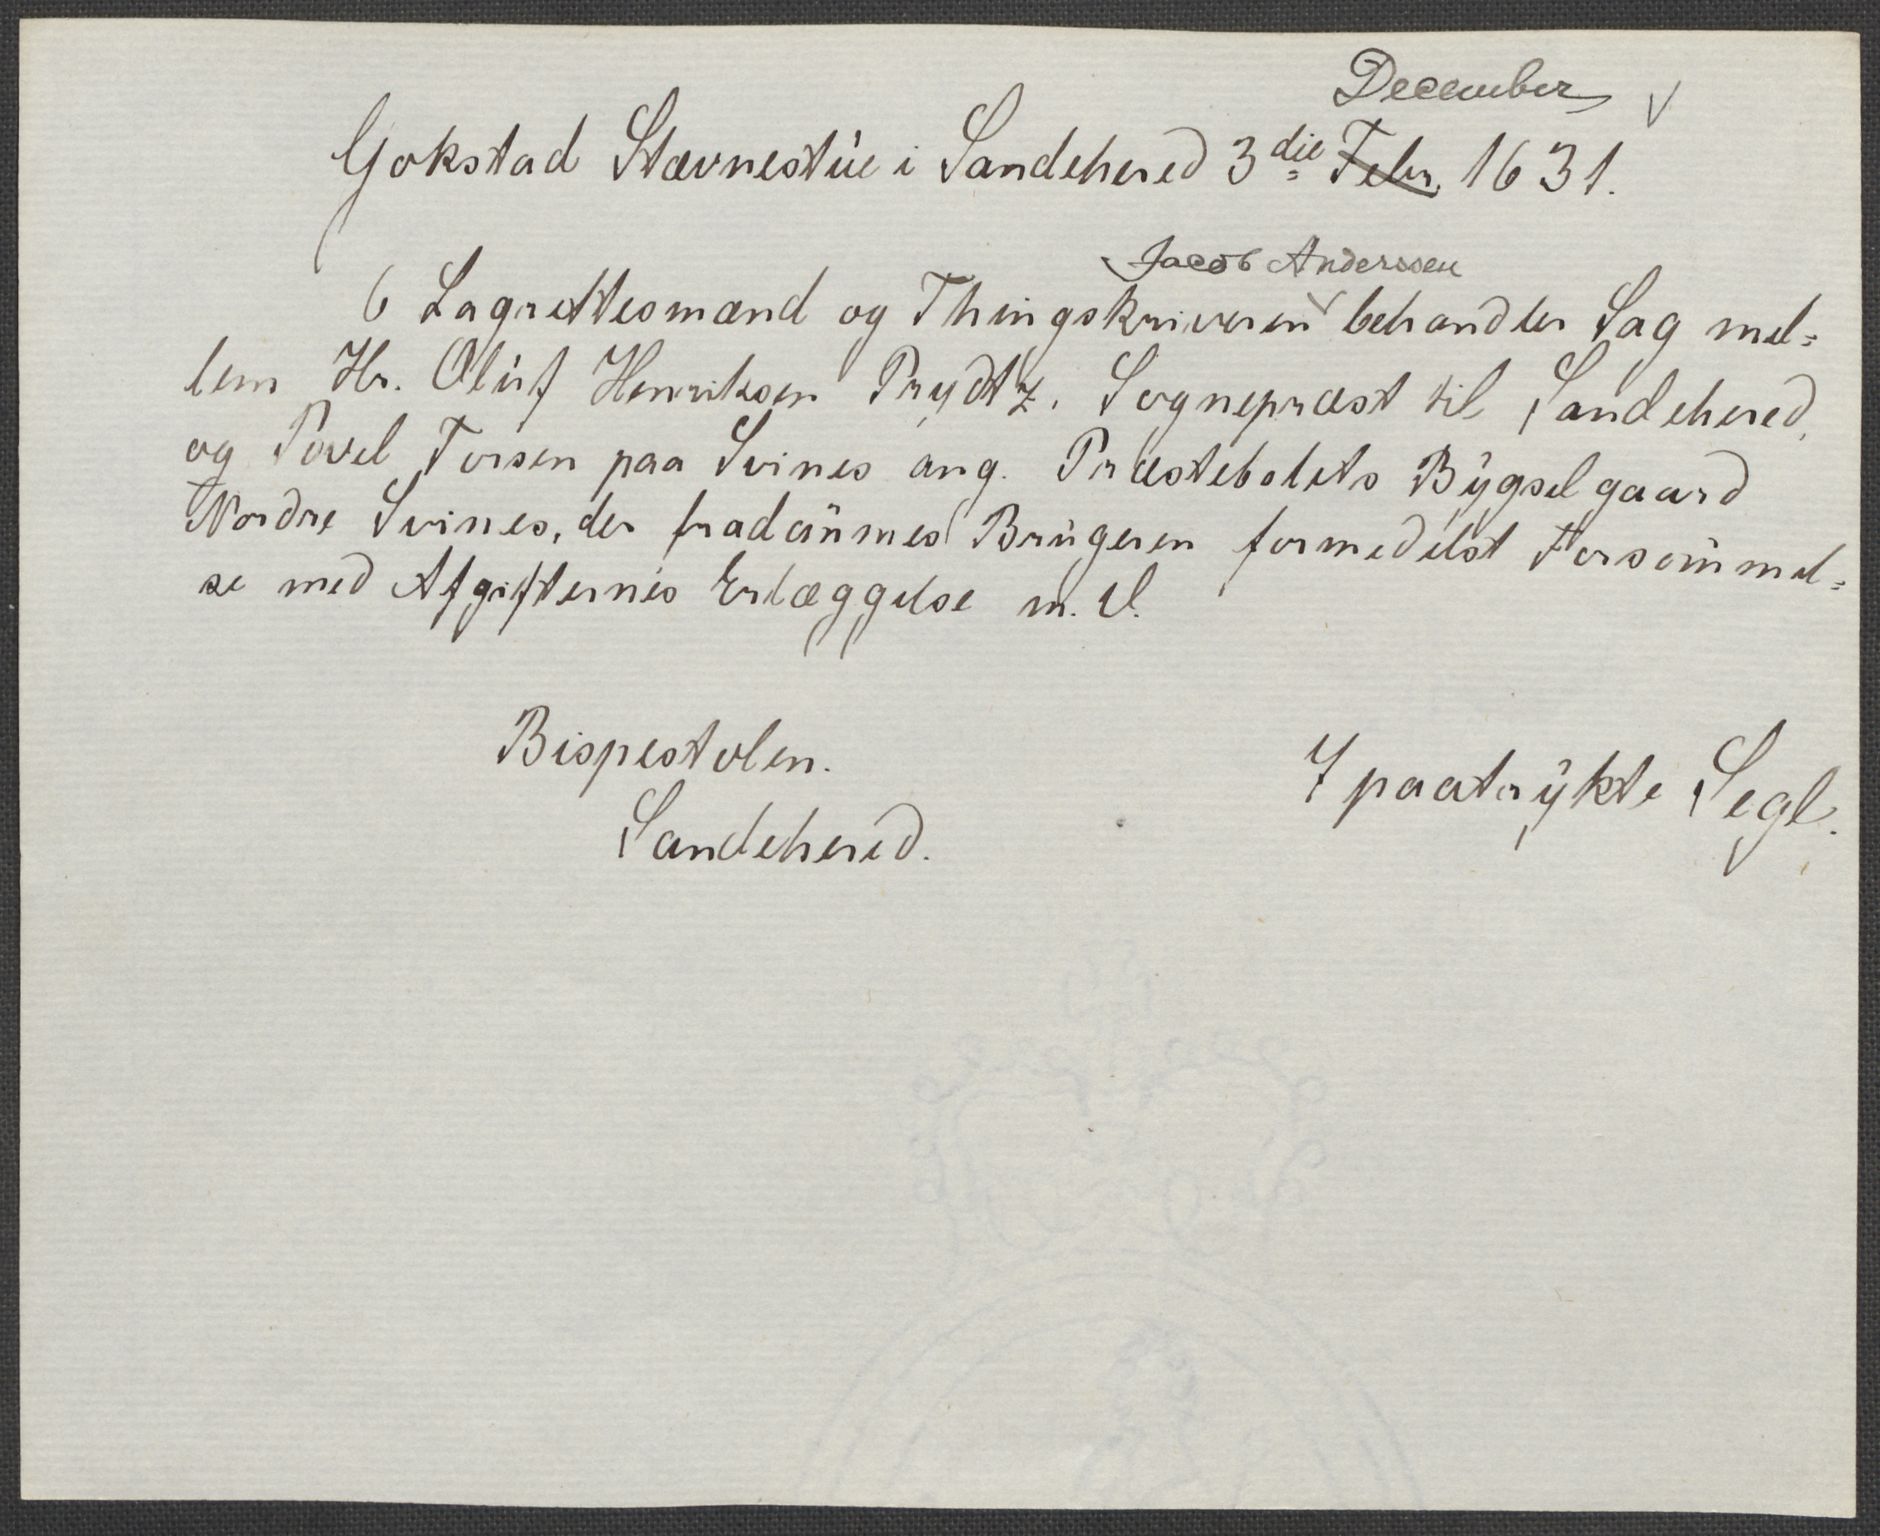 December
Gokstad Stævnestue i Sandehered 3die Febr. 1631.
Jacob Anderssen
6 Lagrettesmænd og Thingskriveren behandler Sag mel-
lem Hr. Oluf Henriksen Prydtz, Sognepræst til Sandehered,
og Povel Torsen paa Svines ang. Præstebolets Bygselgaard
Nordre Svines, der fradömmes Brugeren formedelst Forsömmel-
se med Afgifternes Erlæggelse m. V.
Bispestolen.
7 paatrykte Segl.
Sandehered.